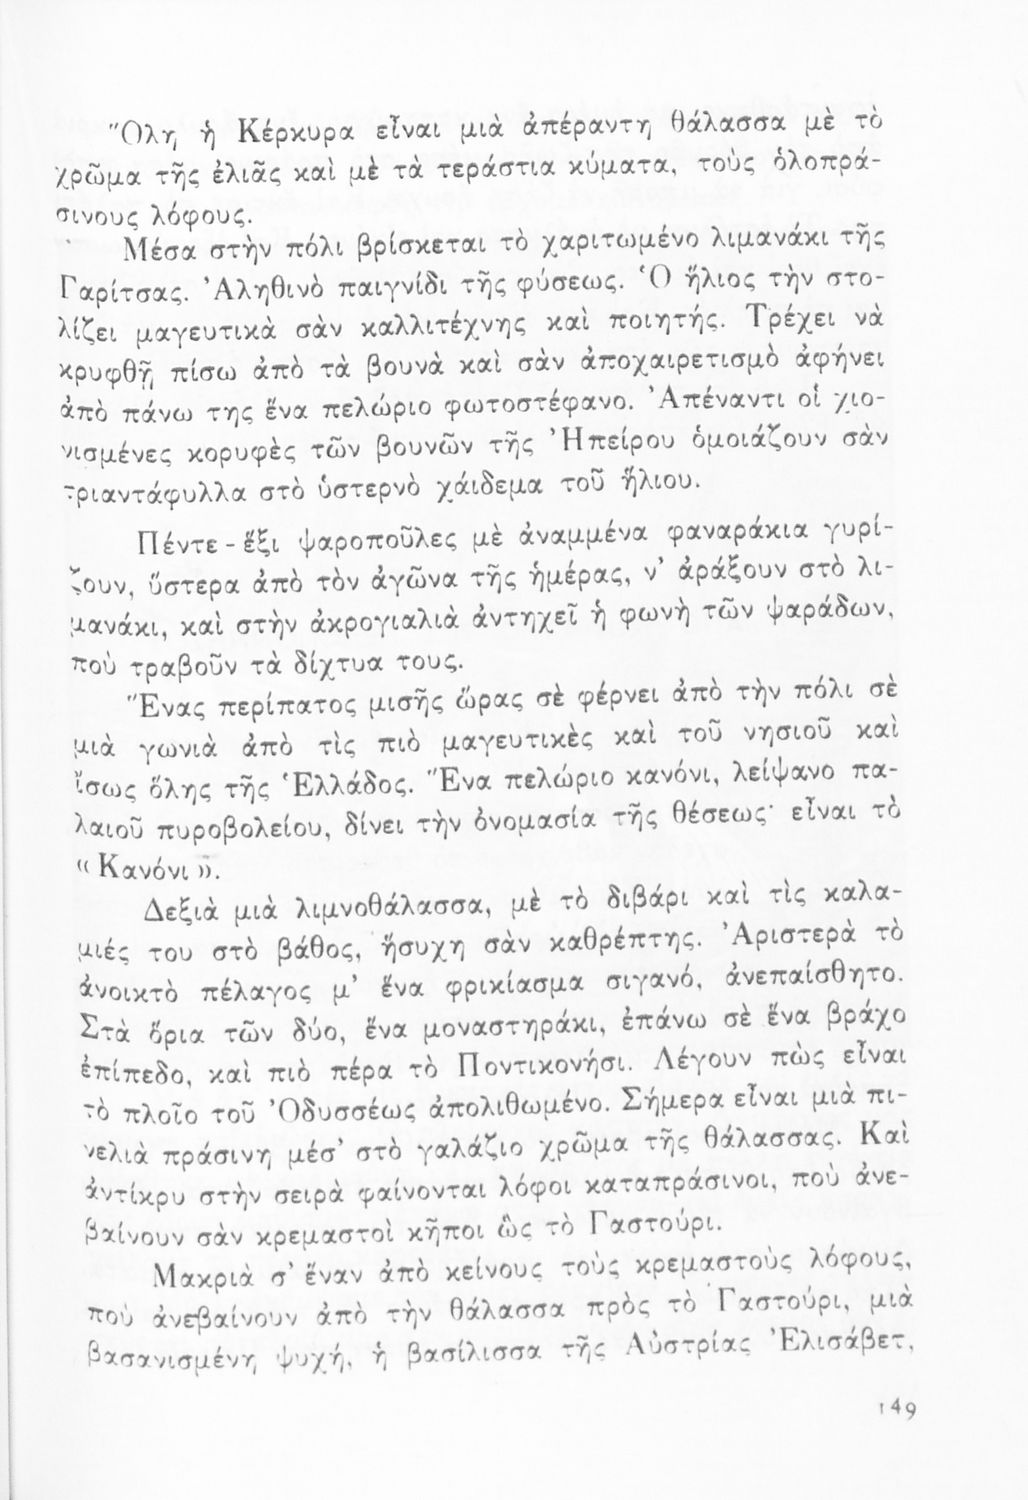 Ὅλη ἡ Κέρκυρα εἶναι μιὰ ἀπέραντη θάλασσα μὲ τὸ
χρῶμα τῆς ἐλιᾶς καὶ μὲ τὰ τεράστια κύματα, τοὺς ὁλοπρά-
σινους λόφους.
Μέσα στὴν πόλι βρίσκεται τὸ χαριτωμένο λιμανάκι τῆς
Γαρίτσας. Ἀληθινὸ παιγνίδι τῆς φύσεως. Ὁ ἥλιος τὴν στο-
λίζει μαγευτικὰ σὰν καλλιτέχνης καὶ ποιητής. Τρέχει νὰ
κρυφθῇ πίσω ἀπὸ τὰ βουνὰ καὶ σὰν ἀποχαιρετισμὸ ἀφήνει
ἀπὸ πάνω της ἕνα πελώριο φωτοστέφανο. Ἀπέναντι οἱ χιο-
νισμένες κορυφὲς τῶν βουνῶν τῆς Ἠπείρου ὁμοιάζουν σὰν
τριαντάφυλλα στὸ ὑστερνὸ χάιδεμα τοῦ ἥλιου.
Πέντε - ἕξι ψαροποῦλες μὲ ἀναμμένα φαναράκια γυρί-
ζουν, ὕστερα ἀπὸ τὸν ἀγῶνα τῆς ἡμέρας, ν’ ἀράξουν στὸ λι-
μανάκι, καὶ στὴν ἀκρογιαλιὰ ἀντηχεῖ ἡ φωνὴ τῶν ψαράδων,
ποὺ τραβοῦν τὰ δίχτυα τους.
Ἕνας περίπατος μισῆς ὥρας σὲ φέρνει ἀπὸ τὴν πόλι σὲ
μιὰ γωνιὰ ἀπὸ τὶς πιὸ μαγευτικὲς καὶ τοῦ νησιοῦ καὶ
ἴσως ὅλης τῆς Ἑλλάδος. Ἕνα πελώριο κανόνι, λείψανο πα-
λαιοῦ πυροβολείου, δίνει τὴν ὀνομασία τῆς θέσεως· εἶναι τὸ
« Κανόνι ».
Δεξιὰ μιὰ λιμνοθάλασσα, μὲ τὸ διβάρι καὶ τὶς καλα-
μιές του στὸ βάθος, ἥσυχη σὰν καθρέπτης. Ἀριστερὰ τὸ
ἀνοικτὸ πέλαγος μ’ ἕνα φρικίασμα σιγανό, ἀνεπαίσθητο.
Στὰ ὅρια τῶν δύο, ἕνα μοναστηράκι, ἐπάνω σὲ ἕνα βράχο
ἐπίπεδο, καὶ πιὸ πέρα τὸ Ποντικονήσι. Λέγουν πὼς εἶναι
τὸ πλοῖο τοῦ Ὀδυσσέως ἀπολιθωμένο. Σήμερα εἶναι μιὰ πι-
νελιὰ πράσινη μέσ’ στὸ γαλάζιο χρῶμα τῆς θάλασσας. Καὶ
ἀντίκρυ στὴν σειρὰ φαίνονται λόφοι καταπράσινοι, ποὺ ἀνε-
βαίνουν σὰν κρεμαστοὶ κῆποι ὣς τὸ Γαστούρι.
Μακριὰ σ’ ἕναν ἀπὸ κείνους τοὺς κρεμαστοὺς λόφους,
ποὺ ἀνεβαίνουν ἀπὸ τὴν θάλασσα πρὸς τὸ Γαστούρι, μιὰ
βασανισμένη ψυχή, ἡ βασίλισσα τῆς Αὐστρίας Ἐλισάβετ,
149